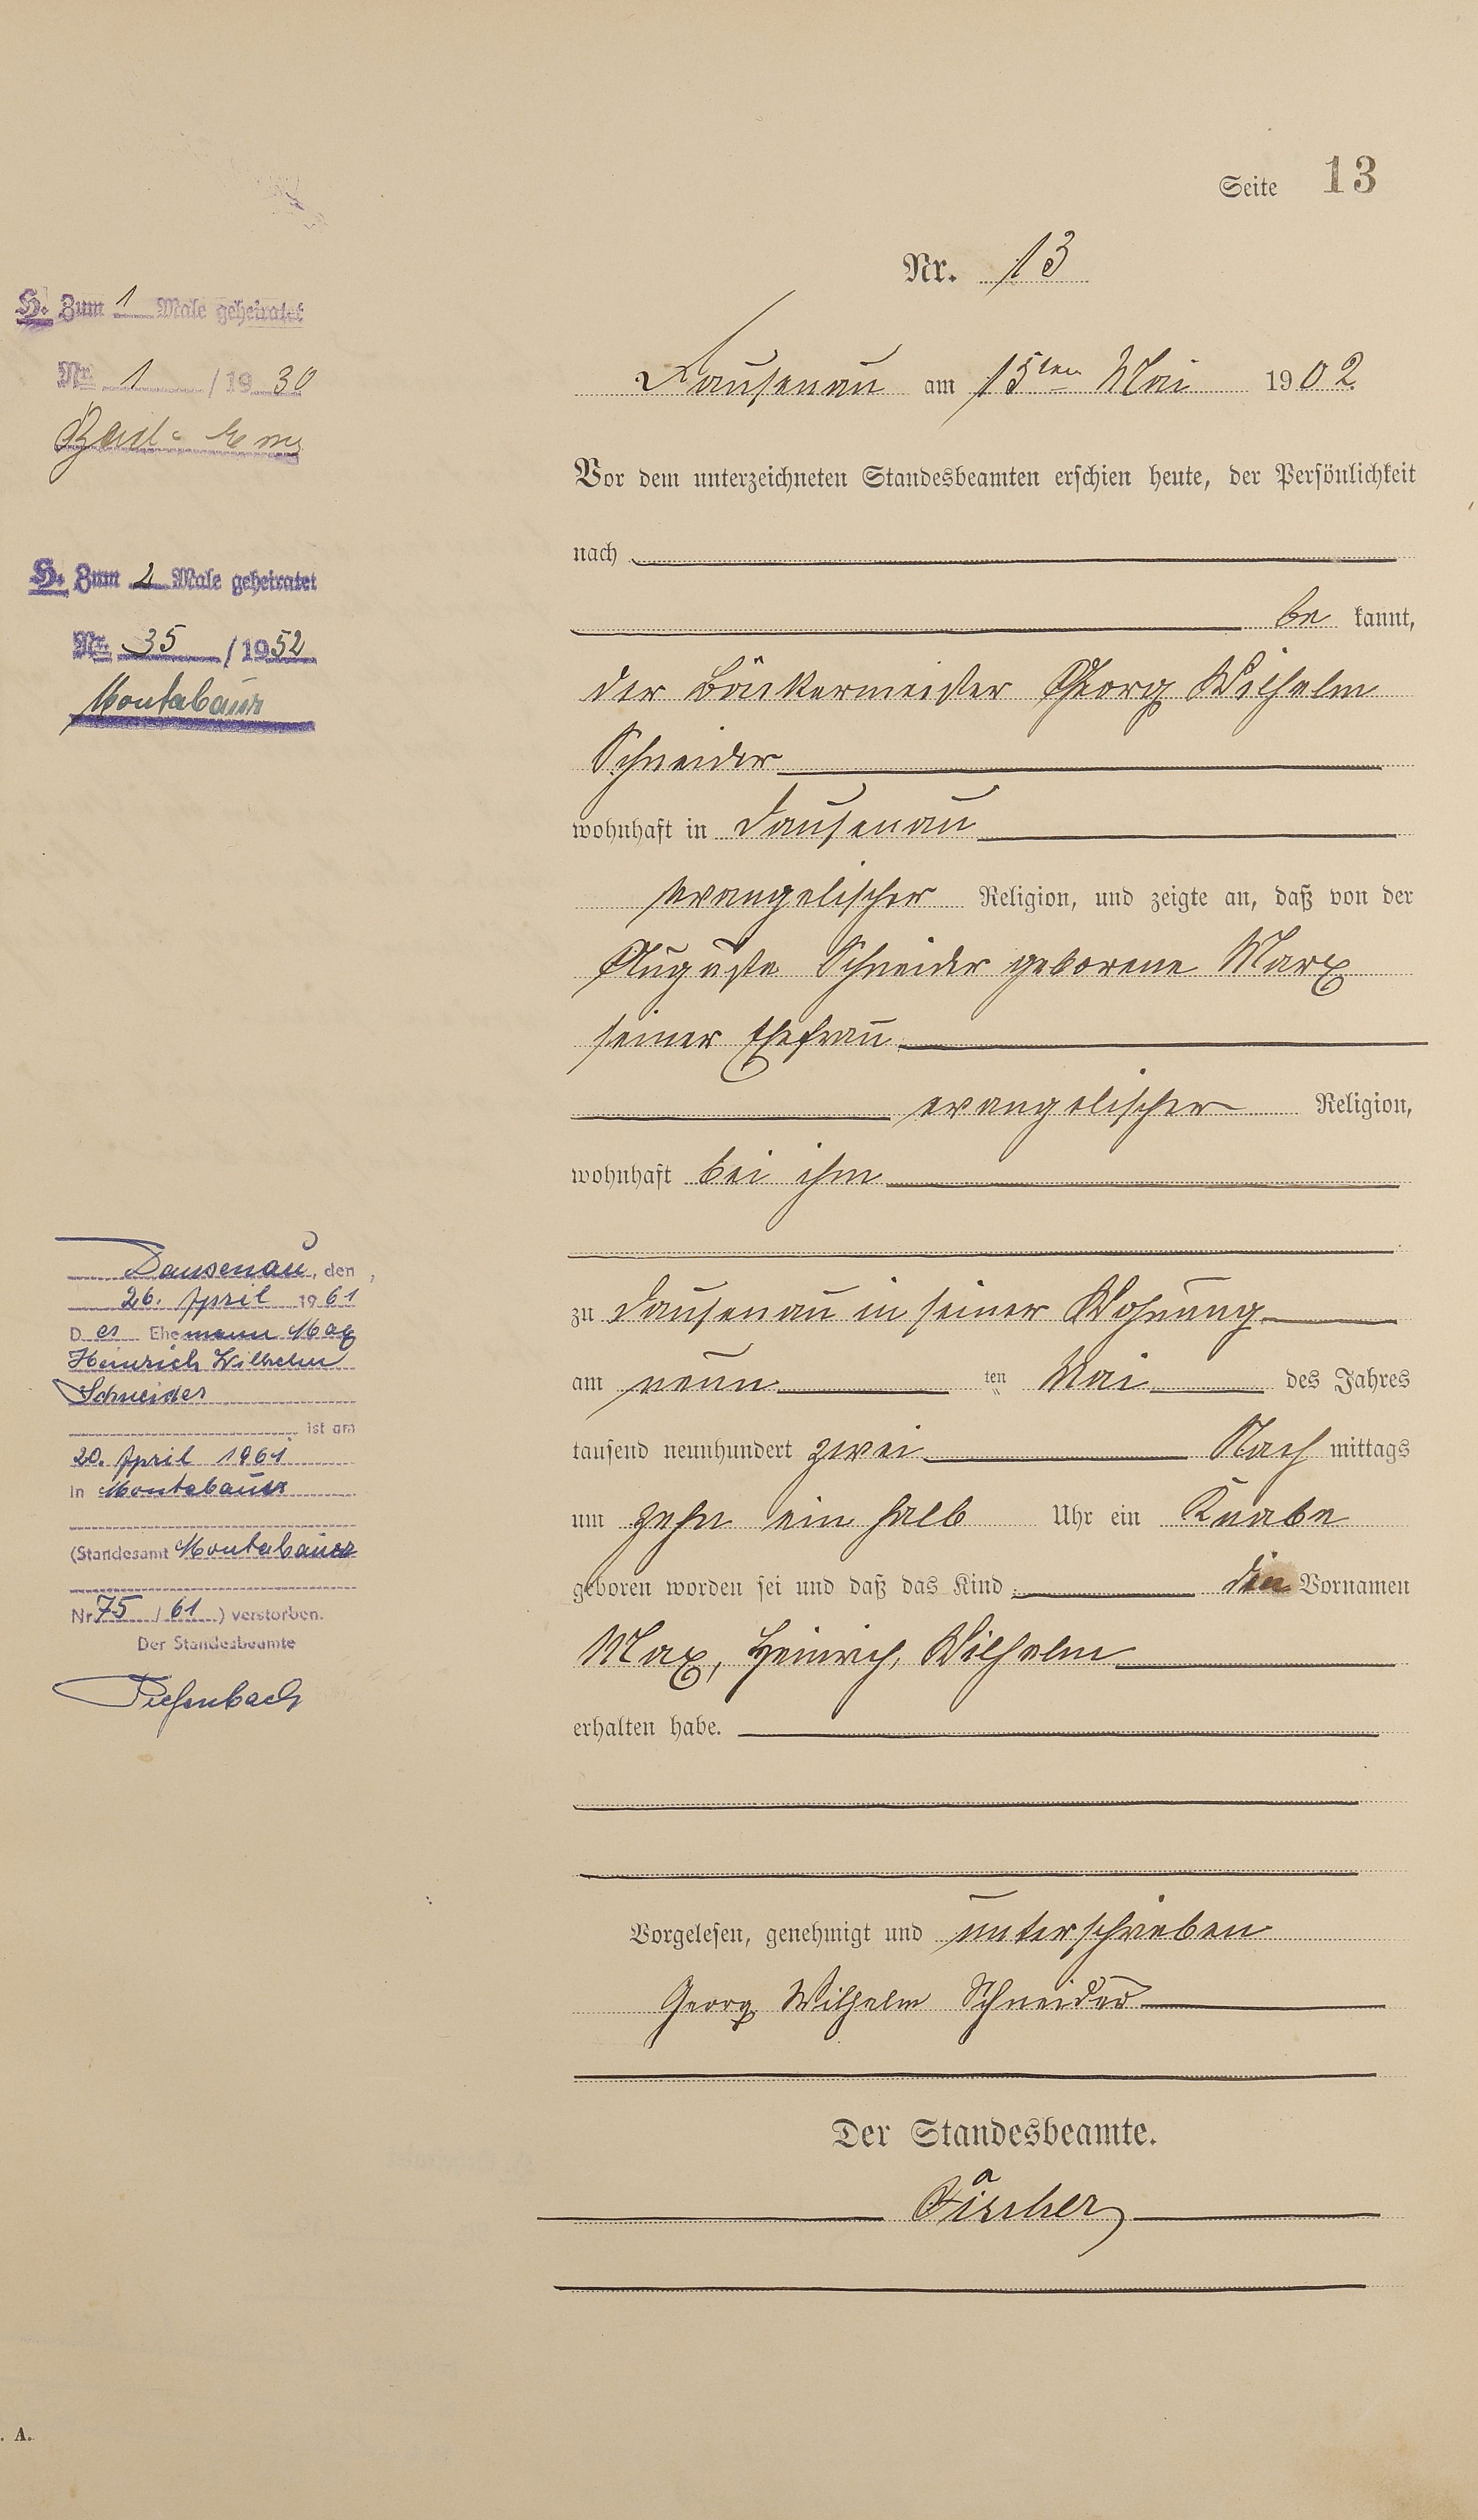 Seite 13
Nr. 13
H. Zum 1 Male geheiratet
Nr. 1 / 19 30
Bad-Ems
H. Zum 2 Male geheiratet
Nr. 35 / 1952
Montabaur
Dausenau am 15ten Mai 1902
Vor dem unterzeichneten Standesbeamten erschien heute, der Persönlichkeit
nach
be kannt,
der Bäckermeister Georg Wilhelm
Schneider
wohnhaft in Dausenau
evangelischer Religion, und zeigte an, daß von der
Auguste Schneider geborene Marx
seiner Ehefrau
evangelischer Religion,
wohnhaft bei ihm
zu Dausenau in seiner Wohnung
am neun ten Mai des Jahres
tausend neunhundert zwei Nach mittags
um zehn ein halb Uhr ein Knabe
geboren worden sei und daß das Kind die Vornamen
Max, Heinrich, Wilhelm
erhalten habe.
Vorgelesen, genehmigt und unterschrieben
Georg Wilhelm Schneider
Der Standesbeamte.
Fischer
Dausenau, den
26. April 1961
D er Ehemann Max
Heinrich Wilhelm
Schneider
ist am
20. April 1961
in Montabaur
(Standesamt Montabaur
Nr 75 / 61) verstorben.
Der Standesbeamte
Tiefenbach
. A.